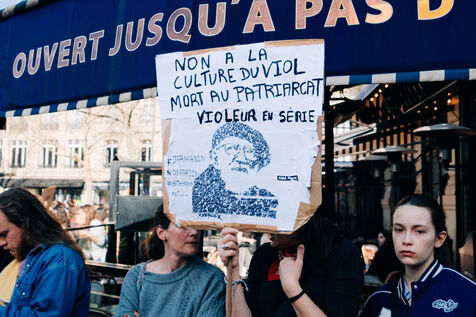 OUVERT JUSQU'À PAS D
NON À LA
CULTURE DU VIOL
MORT AU PATRIARCAT
VIOLEUR EN SÉRIE
#DARMANIN